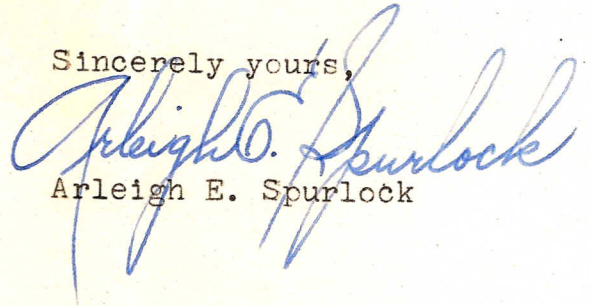 Sincerely yours,
Arleigh E. Spurlock
Arleigh E. Spurlock